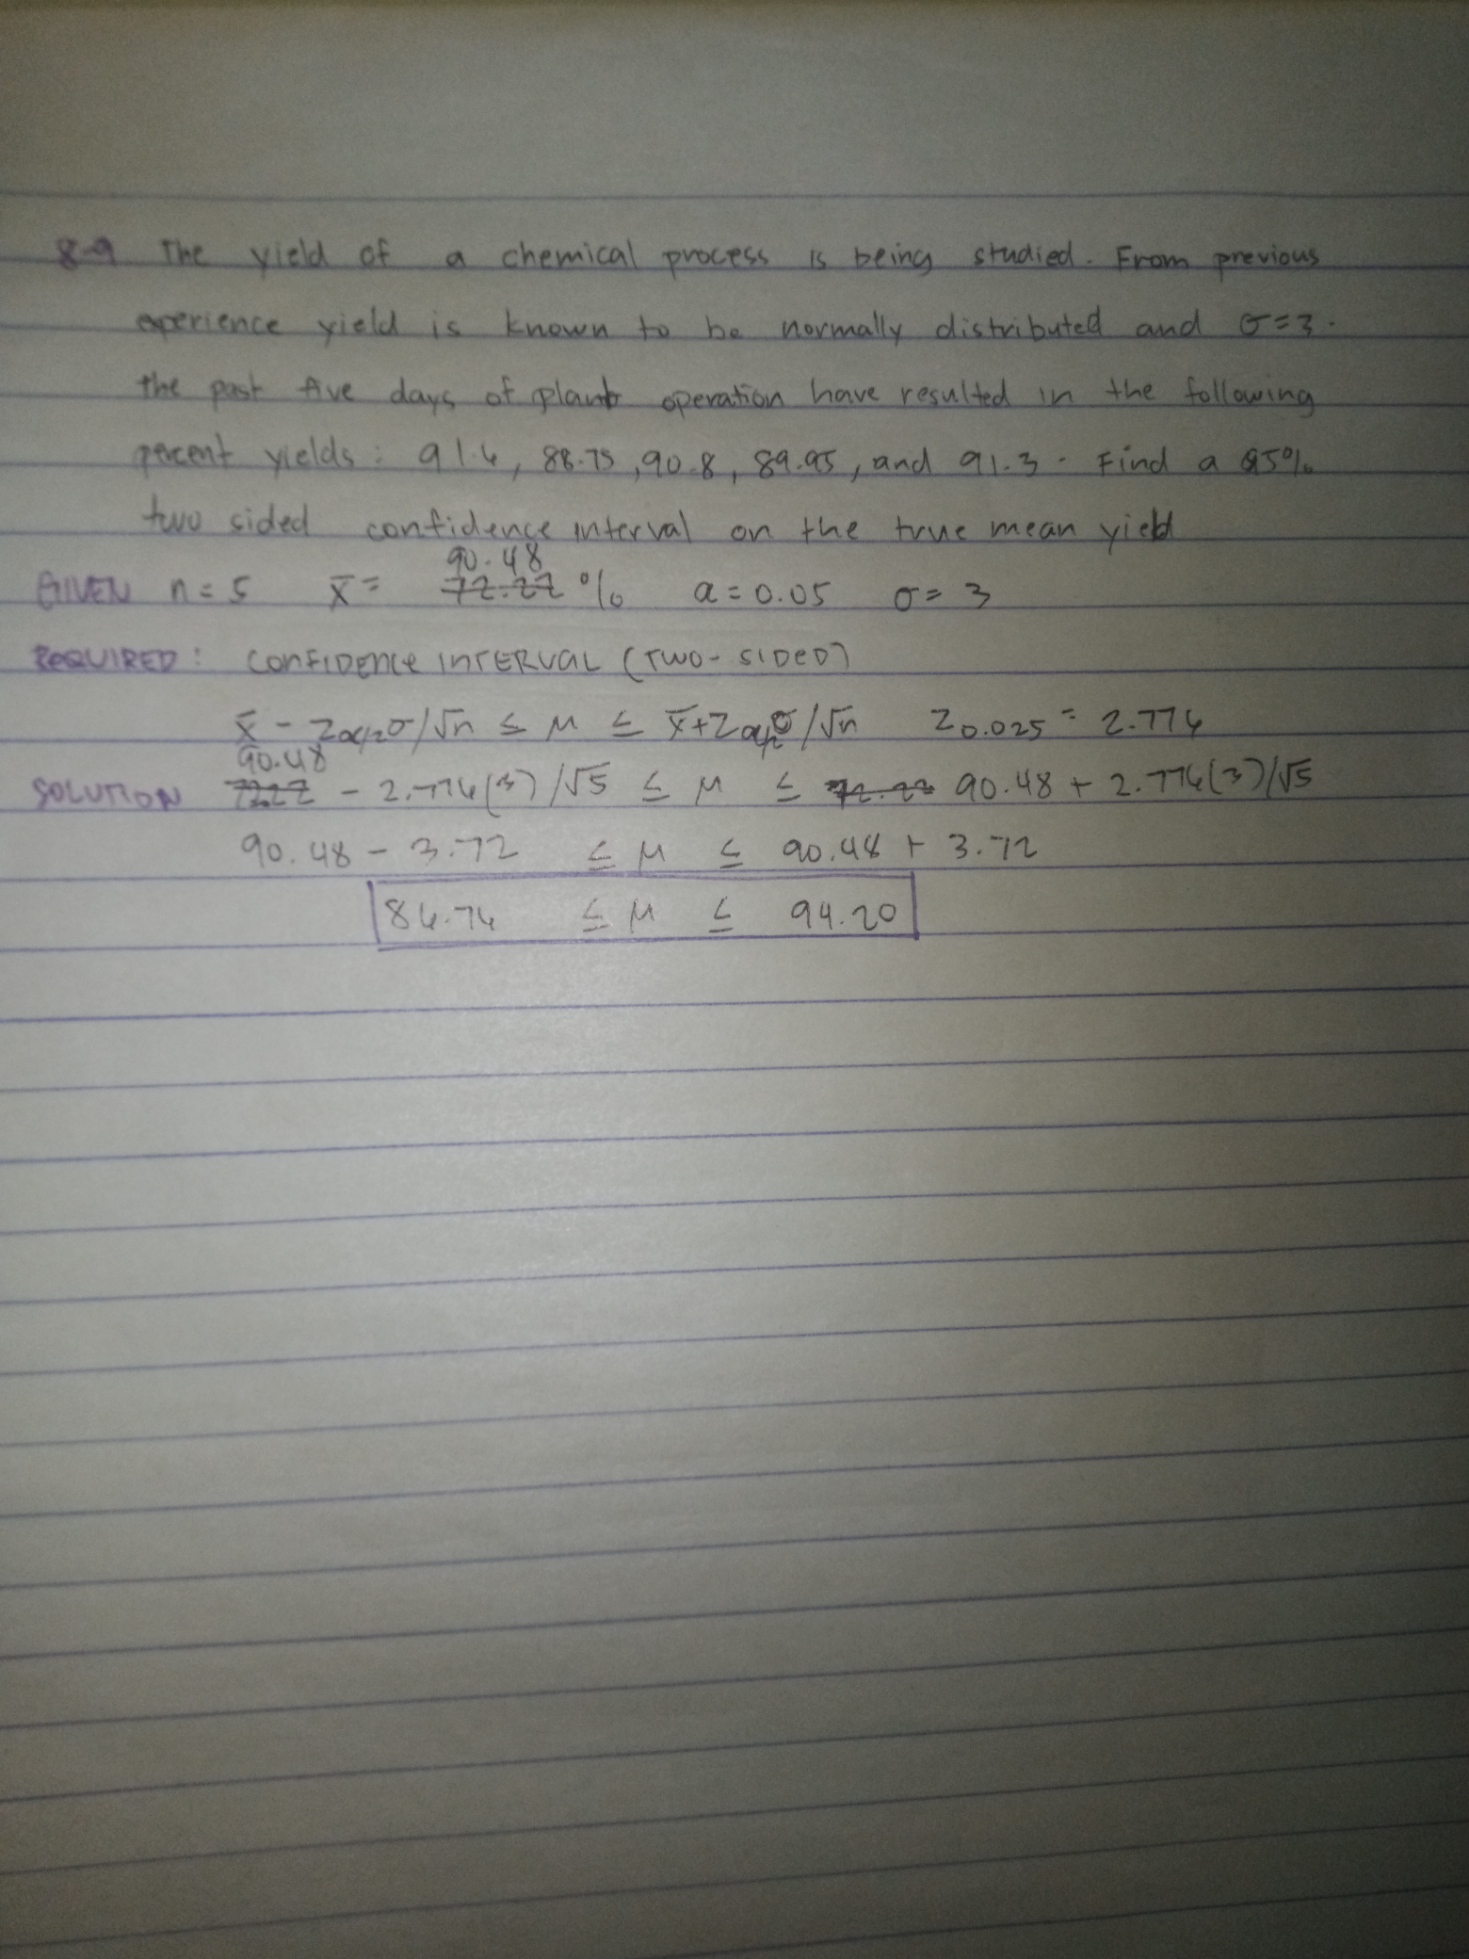 8-9 The yield of a chemical process is being studied. From previous
experience yield is known to be normally distributed and σ=3.
the past five days of plant operation have resulted in the following
percent yields: 91.6, 88.75, 90.8, 89.95, and 91.3. Find a 95%
two sided confidence interval on the true mean yield
90.48
GIVEN n=5 x̄= 72.27 % α=0.05 σ=3
REQUIRED: CONFIDENCE INTERVAL (TWO-SIDED)
x̄ - Zα/2σ/√n ≤ μ ≤ x̄+Zα/2σ/√n Z0.025 = 2.776
90.48
SOLUTION 72.27 - 2.776(3)/√5 ≤ μ ≤ 90.48 + 2.776(3)/√5
90.48 - 3.72 ≤ μ ≤ 90.48 + 3.72
86.76 ≤ μ ≤ 94.20